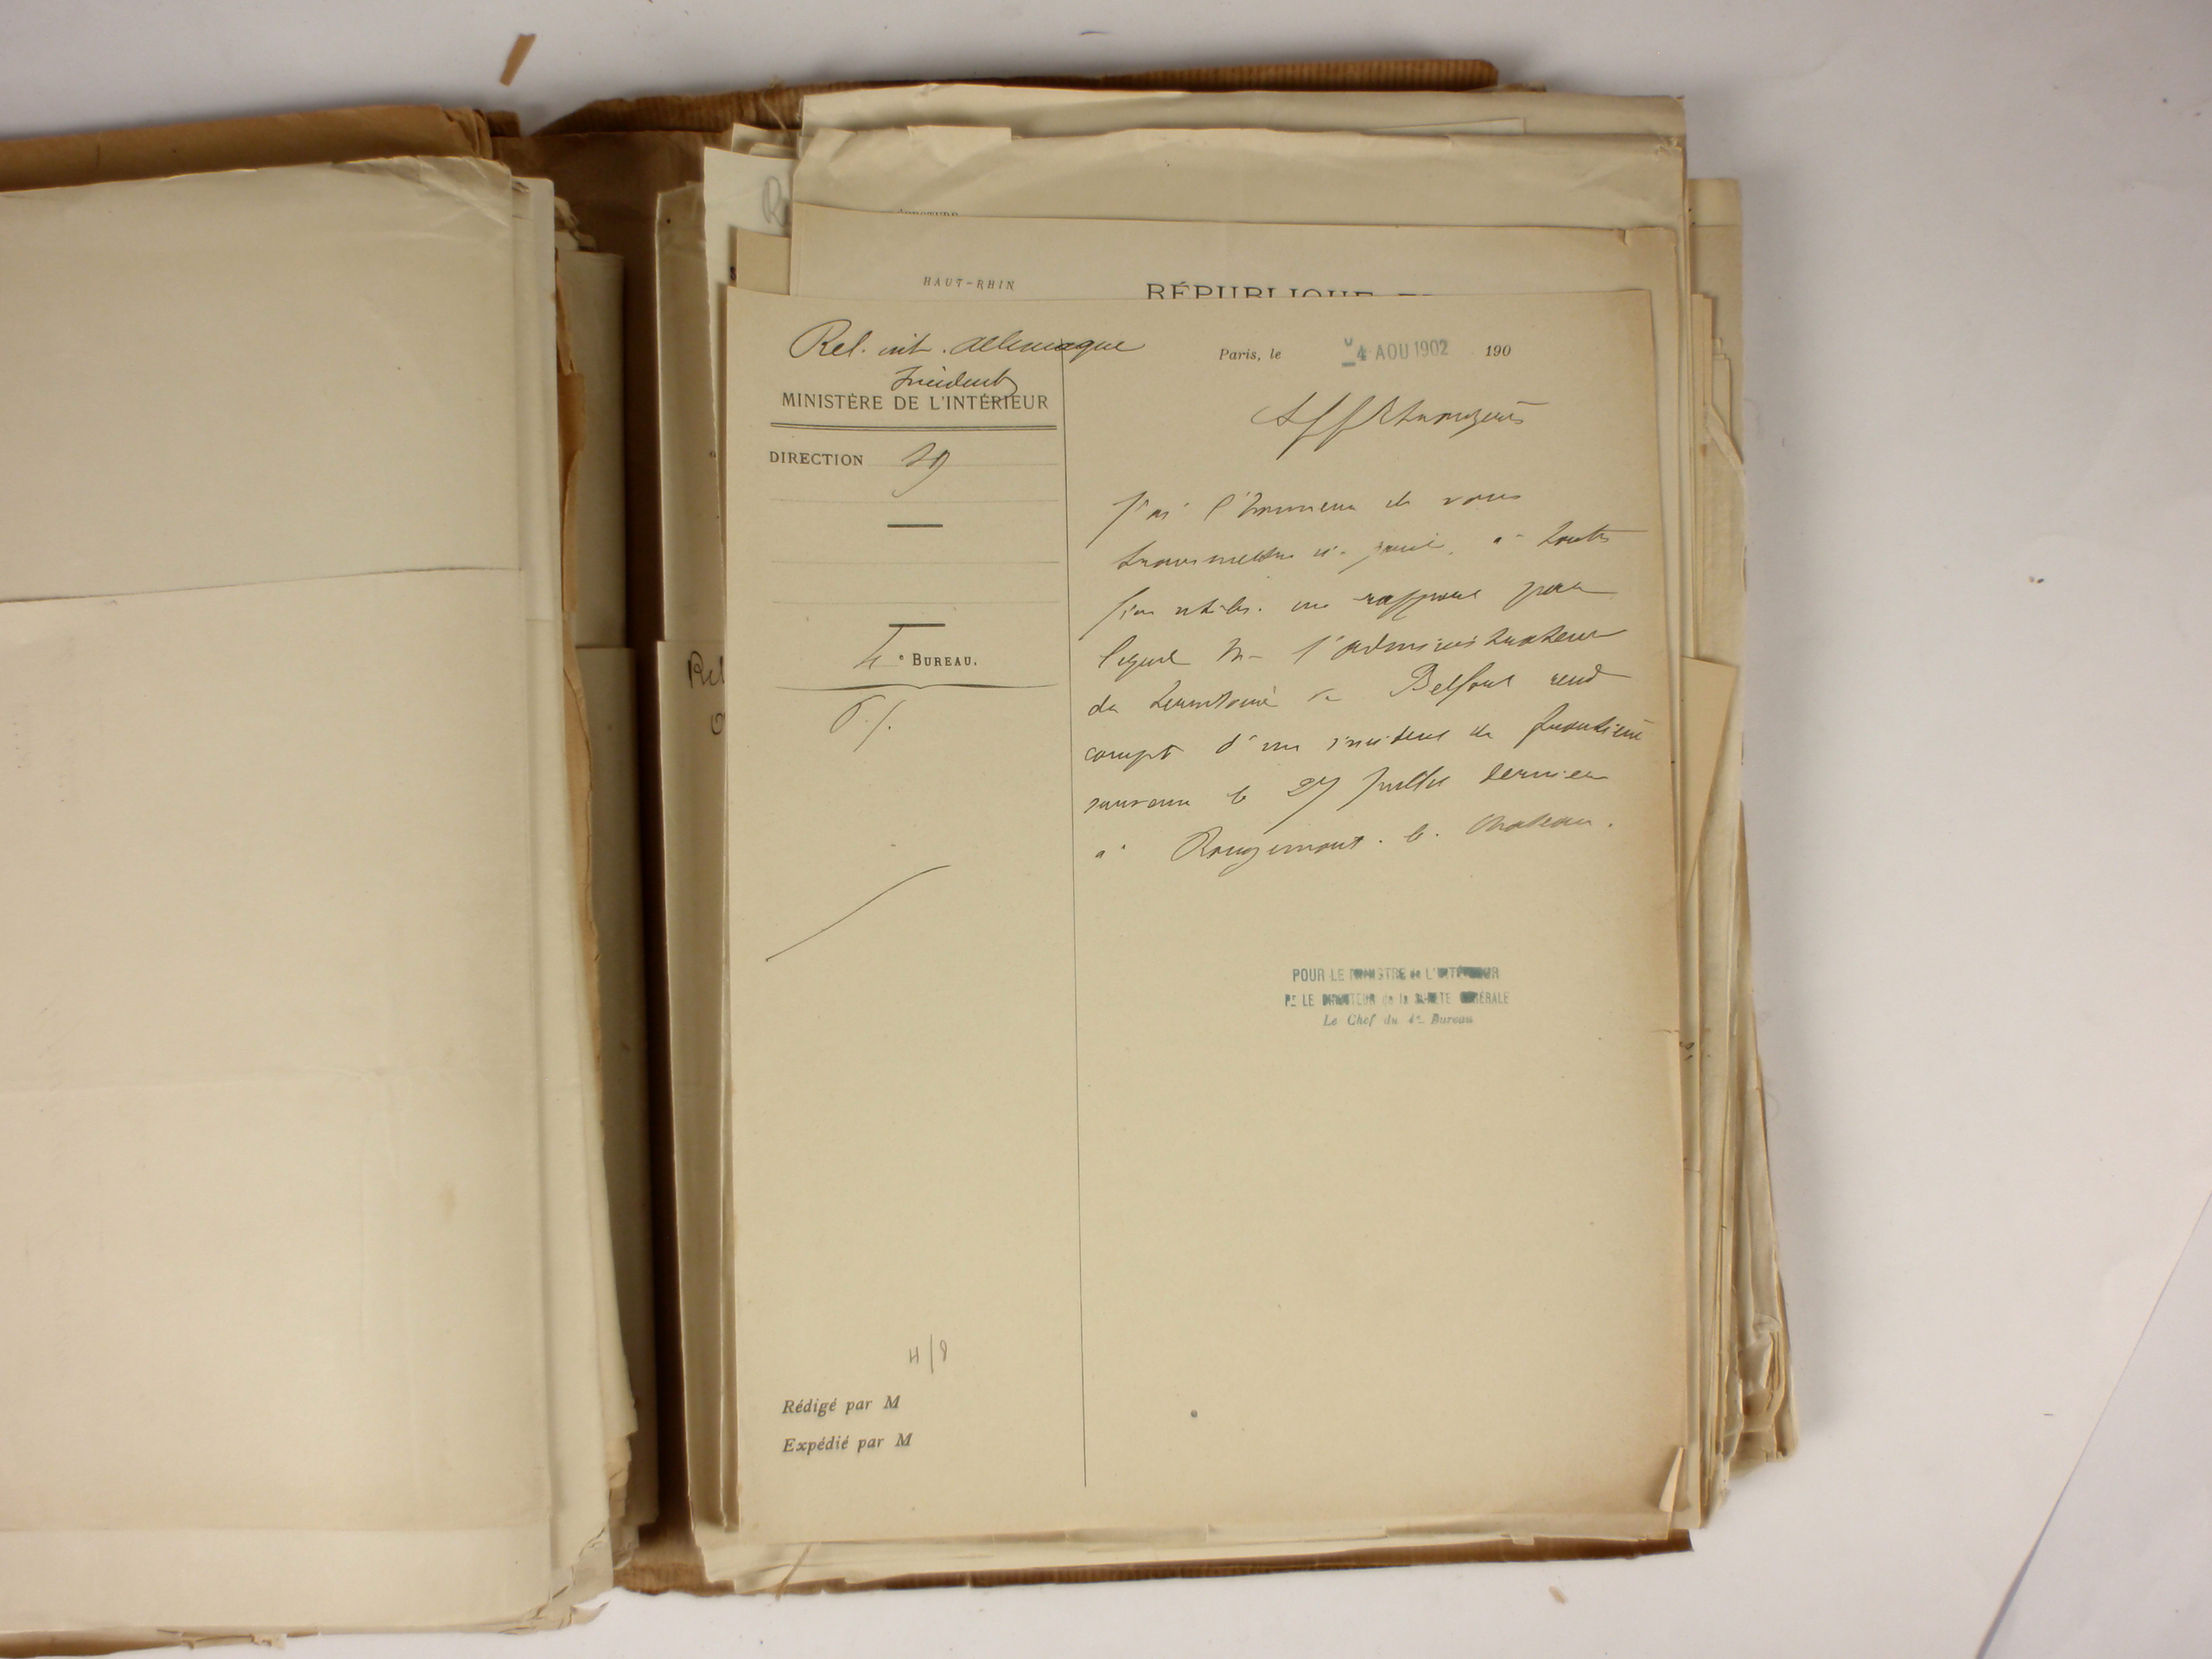 HAUT-RHIN
RÉPUBLIQUE
Rel. int. Allemagne
Incidents
MINISTÈRE DE L'INTÉRIEUR
DIRECTION SG
4e BUREAU.
Paris, le 4 AOU 1902 190
Aff Etrangères
J'ai l'honneur de vous
transmettre ci-joint, à toutes
fins utiles, un rapport par
lequel M. l'administrateur
du territoire de Belfort rend
compte d'un incident de frontière
survenu le 27 Juillet dernier
à Rougemont-le-Chateau.
POUR LE MINISTRE de L'INTÉRIEUR
Pr LE DIRECTEUR de la SURETE GÉNÉRALE
Le Chef du 4e Bureau
4/8
Rédigé par M
Expédié par M
Rel